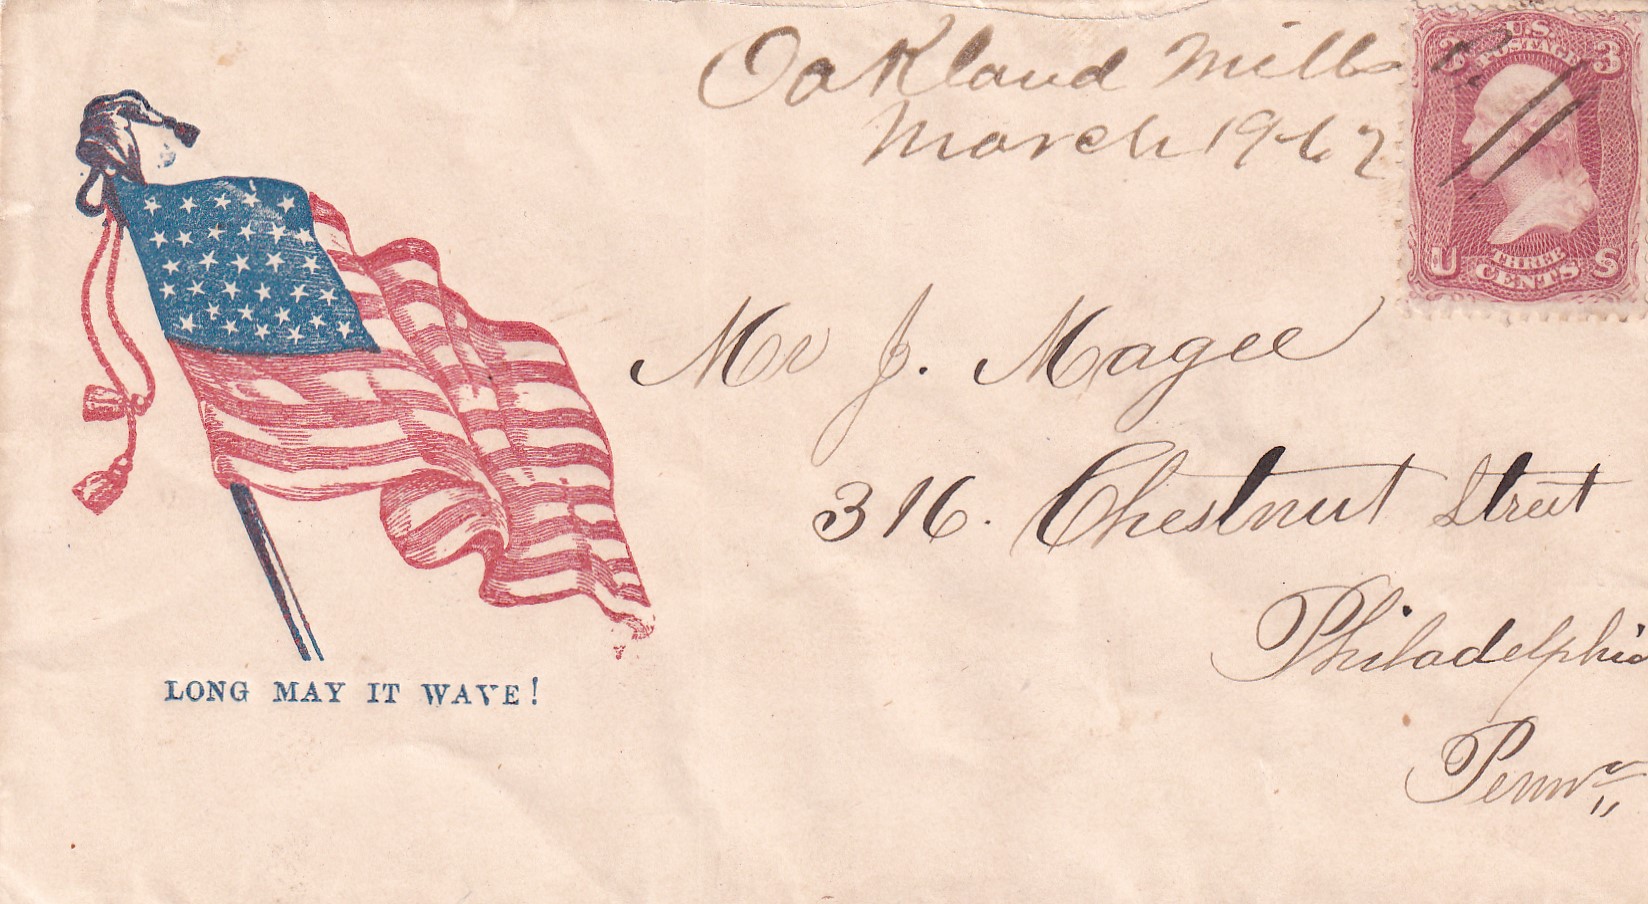 Oakland Mills
March 19-62
U.S.
POSTAGE
3 3
U THREE S
CENTS
Mr J. Magee
316. Chestnut Street
Philadelphia
Penna
LONG MAY IT WAVE!